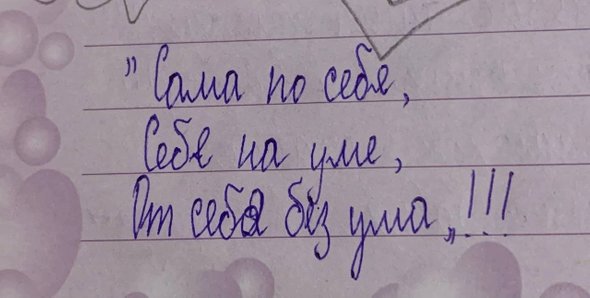 "Сама по себе,
Себе на уме,
От себя без ума„!!!